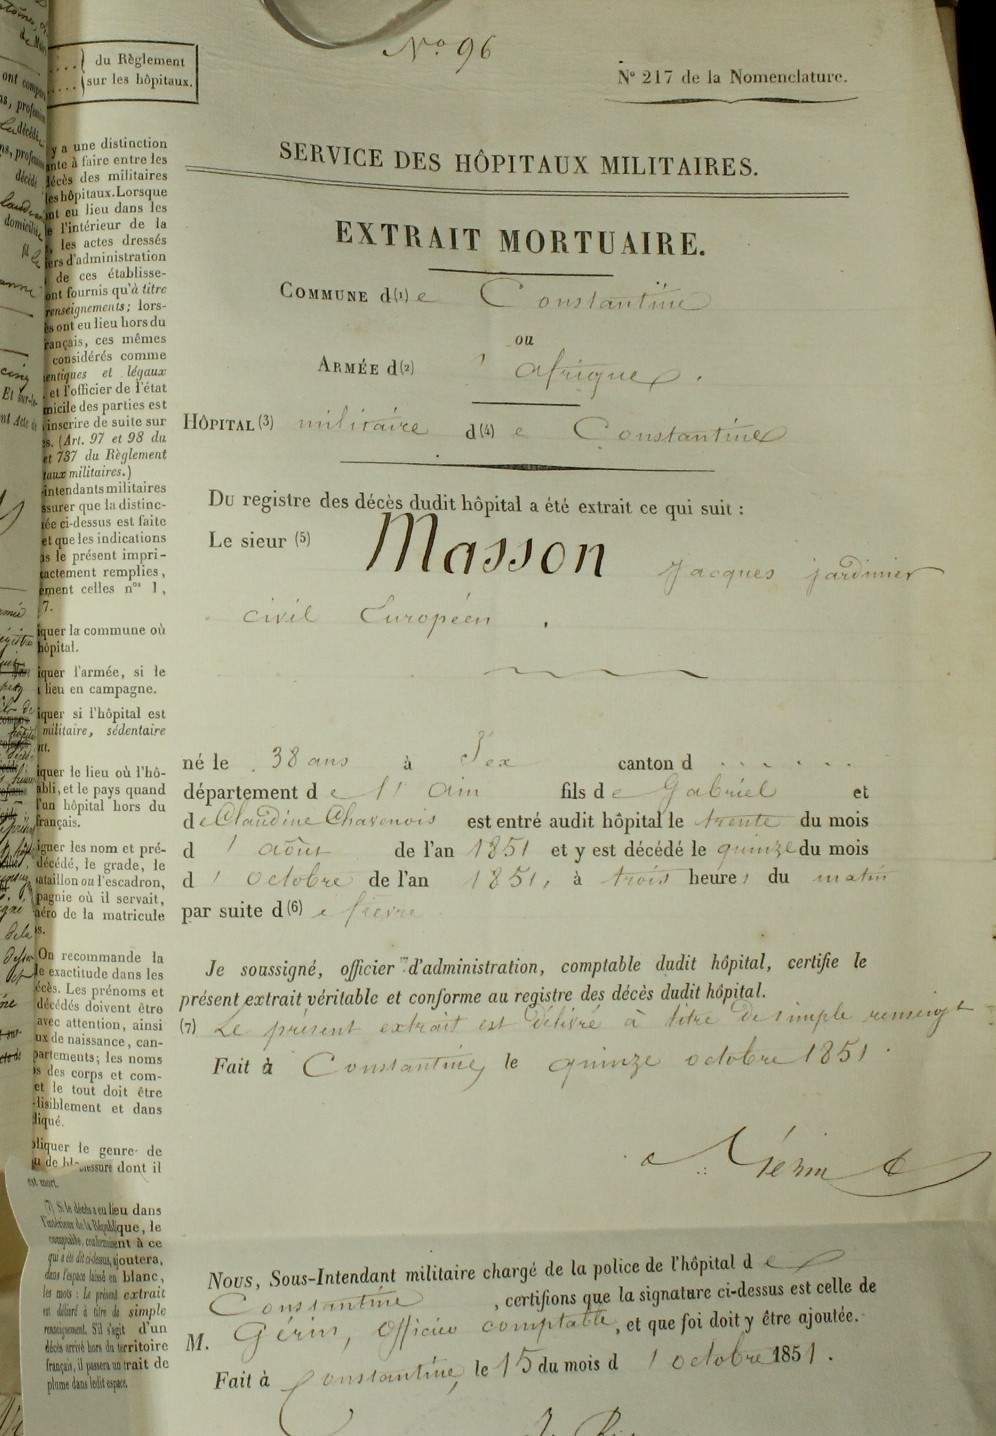 N° 96
N° 217 de la Nomenclature.
du Règlement
sur les hôpitaux.
SERVICE DES HÔPITAUX MILITAIRES.
EXTRAIT MORTUAIRE.
COMMUNE d(1) e Constantine
ou
ARMÉE d(2) ' afrique.
HÔPITAL (3) militaire d(4) e Constantine
Du registre des décès dudit hôpital a été extrait ce qui suit :
Le sieur (5) Masson Jacques jardinier
civil Européen,
né le 38 ans à canton d . . . . . .
département d e l'ain fils d e Gabriel et
d e Claudine Chavenois est entré audit hôpital le trente du mois
d ' août de l'an 1851 et y est décédé le quinze du mois
d ' octobre de l'an 1851, à trois heures du matin
par suite d(6) e fièvre
Je soussigné, officier d'administration, comptable dudit hôpital, certifie le
présent extrait véritable et conforme au registre des décès dudit hôpital.
(7) Le présent extrait est délivré à titre de simple renseigt
Fait à Constantine, le quinze octobre 1851.
Gérin
Nous, Sous-Intendant militaire chargé de la police de l'hôpital d e
Constantine, certifions que la signature ci-dessus est celle de
M. Gérin, Officier comptable, et que foi doit y être ajoutée.
Fait à Constantine, le 15 du mois d ' octobre 1851.
y a une distinction
à faire entre les
décès des militaires
hôpitaux. Lorsque
eu lieu dans les
l'intérieur de la
les actes dressés
d'administration
de ces établisse-
fournis qu'à titre
renseignements; lors-
ont eu lieu hors du
français, ces mêmes
considérés comme
et légaux
et l'officier de l'état
domicile des parties est
inscrire de suite sur
(Art. 97 et 98 du
et 737 du Règlement
militaires.)
intendants militaires
assurer que la distinc-
ci-dessus est faite
et que les indications
le présent impri-
exactement remplies,
celles nos 1,
7.
la commune où
hôpital.
l'armée, si le
lieu en campagne.
si l'hôpital est
militaire, sédentaire
le lieu où l'hô-
et le pays quand
hôpital hors du
français.
les nom et pré-
décédé, le grade, le
bataillon ou l'escadron,
où il servait,
numéro de la matricule
On recommande la
exactitude dans les
décès. Les prénoms et
décédés doivent être
avec attention, ainsi
de naissance, can-
départements; les noms
des corps et com-
et le tout doit être
lisiblement et dans
le genre de
blessure dont il
est mort.
7) Si le décès a eu lieu dans
l'intérieur de la République, le
comptable, conformément à ce
qui a été dit ci-dessus, ajoutera,
dans l'espace laissé en blanc,
les mots : Le présent extrait
est délivré à titre de simple
renseignement. S'il s'agit d'un
décès arrivé hors du territoire
français, il passera un trait de
plume dans ledit espace.